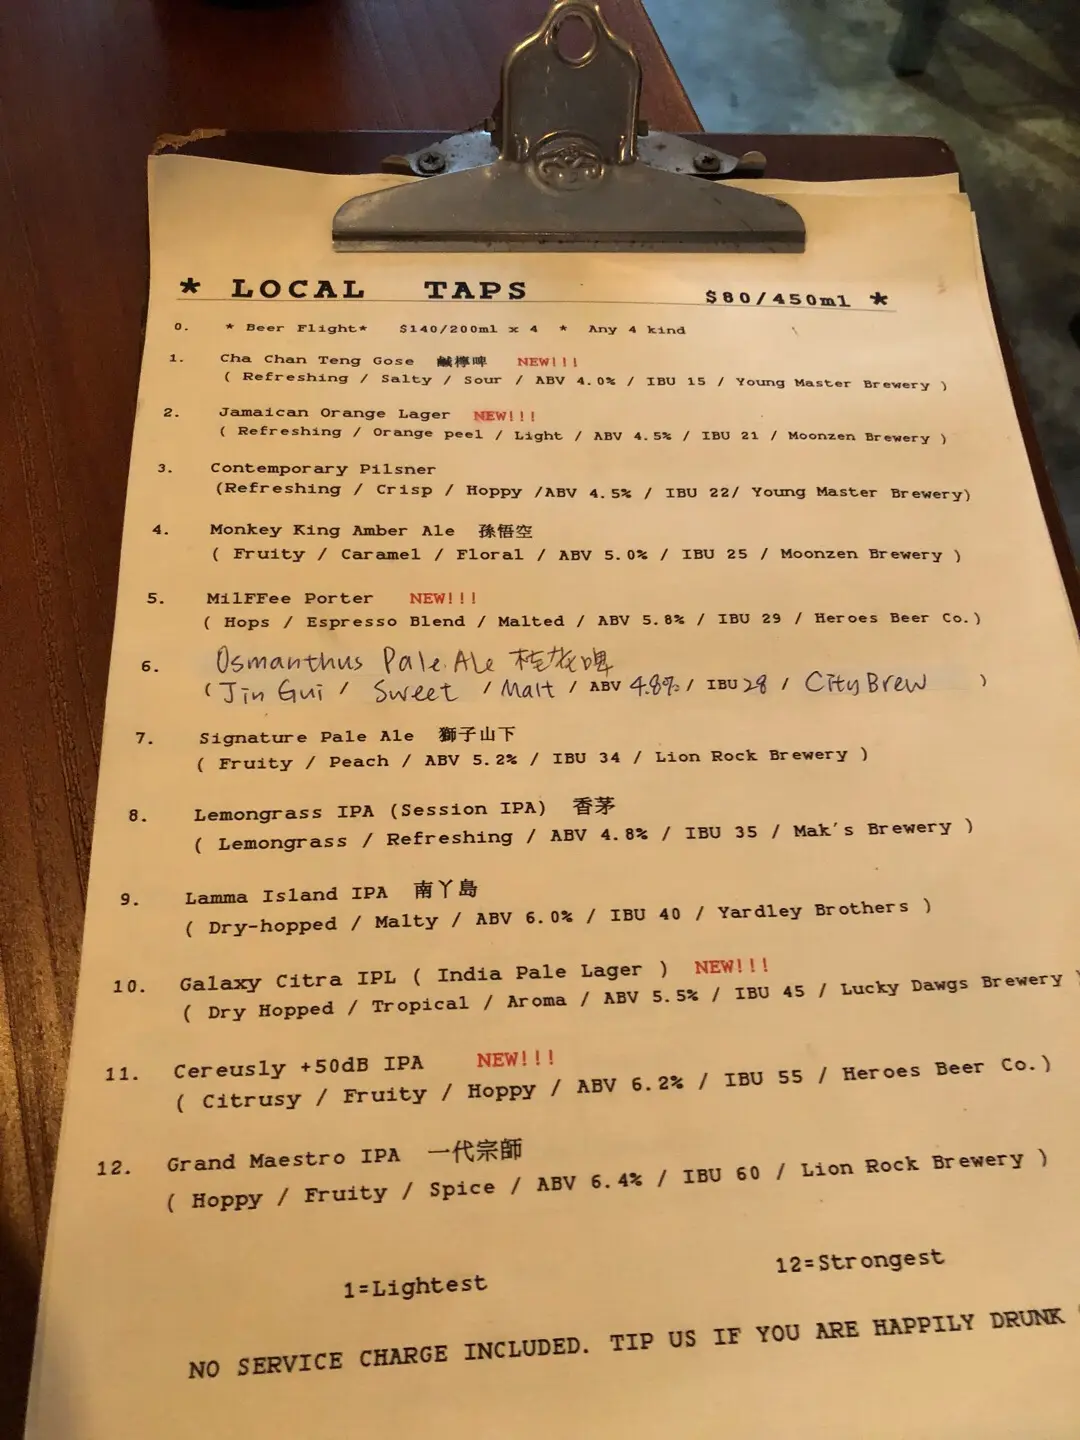 * LOCAL TAPS $80/450ml *
0. * Beer Flight* $140/200ml x 4 * Any 4 kind
1. Cha Chan Teng Gose 鹹檸啤 NEW!!!
( Refreshing / Salty / Sour / ABV 4.0% / IBU 15 / Young Master Brewery )
2. Jamaican Orange Lager NEW!!!
( Refreshing / Orange peel / Light / ABV 4.5% / IBU 21 / Moonzen Brewery )
3. Contemporary Pilsner
(Refreshing / Crisp / Hoppy /ABV 4.5% / IBU 22/ Young Master Brewery)
4. Monkey King Amber Ale 孫悟空
( Fruity / Caramel / Floral / ABV 5.0% / IBU 25 / Moonzen Brewery )
5. MilFFee Porter NEW!!!
( Hops / Espresso Blend / Malted / ABV 5.8% / IBU 29 / Heroes Beer Co.)
6. Osmanthus Pale Ale 桂花啤
( Jin Gui / Sweet / Malt / ABV 4.8% / IBU 28 / City Brew )
7. Signature Pale Ale 獅子山下
( Fruity / Peach / ABV 5.2% / IBU 34 / Lion Rock Brewery )
8. Lemongrass IPA (Session IPA) 香茅
( Lemongrass / Refreshing / ABV 4.8% / IBU 35 / Mak's Brewery )
9. Lamma Island IPA 南丫島
( Dry-hopped / Malty / ABV 6.0% / IBU 40 / Yardley Brothers )
10. Galaxy Citra IPL ( India Pale Lager ) NEW!!!
( Dry Hopped / Tropical / Aroma / ABV 5.5% / IBU 45 / Lucky Dawgs Brewery )
11. Cereusly +50dB IPA NEW!!!
( Citrusy / Fruity / Hoppy / ABV 6.2% / IBU 55 / Heroes Beer Co.)
12. Grand Maestro IPA 一代宗師
( Hoppy / Fruity / Spice / ABV 6.4% / IBU 60 / Lion Rock Brewery )
1=Lightest 12=Strongest
NO SERVICE CHARGE INCLUDED. TIP US IF YOU ARE HAPPILY DRUNK